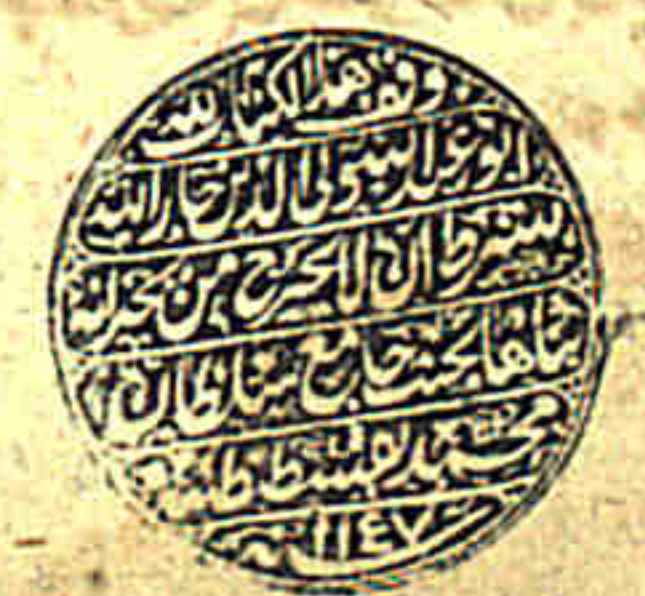 وقف هذا الكتاب لله
ابو عبد الله ولي الدين جار الله
بشرط ان لا يخرج من خزانة
بناها بجنب جامع سلطان
محمد بقسطنطينية
سنة ١١٤٧